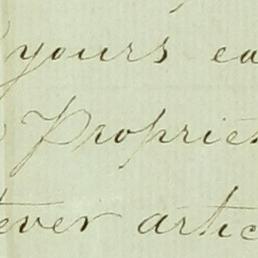 yours ea
Proprie
ever artic